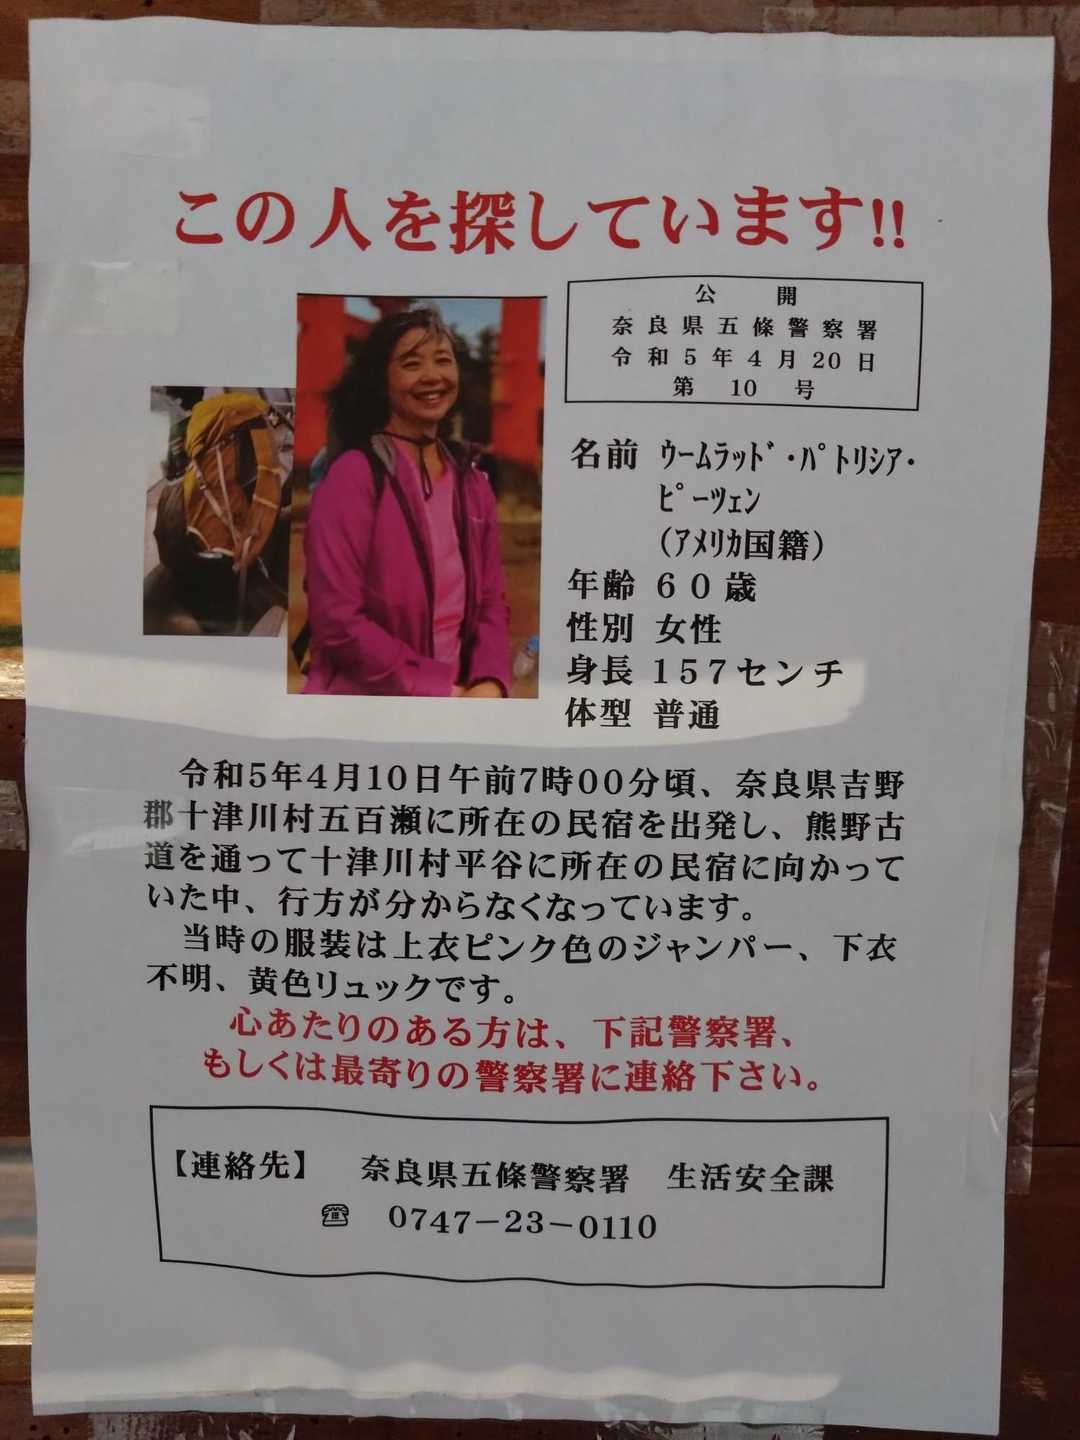 この人を探しています!!
公　開
奈良県五條警察署
令和5年4月20日
第　10　号
名前 ｳｰﾑﾗｯﾄﾞ・ﾊﾟﾄﾘｼｱ・
ﾋﾟｰﾂｪﾝ
（ｱﾒﾘｶ国籍）
年齢 60歳
性別 女性
身長 157センチ
体型 普通
令和5年4月10日午前7時00分頃、奈良県吉野
郡十津川村五百瀬に所在の民宿を出発し、熊野古
道を通って十津川村平谷に所在の民宿に向かって
いた中、行方が分からなくなっています。
当時の服装は上衣ピンク色のジャンパー、下衣
不明、黄色リュックです。
心あたりのある方は、下記警察署、
もしくは最寄りの警察署に連絡下さい。
【連絡先】　奈良県五條警察署　生活安全課
☎　0747－23－0110